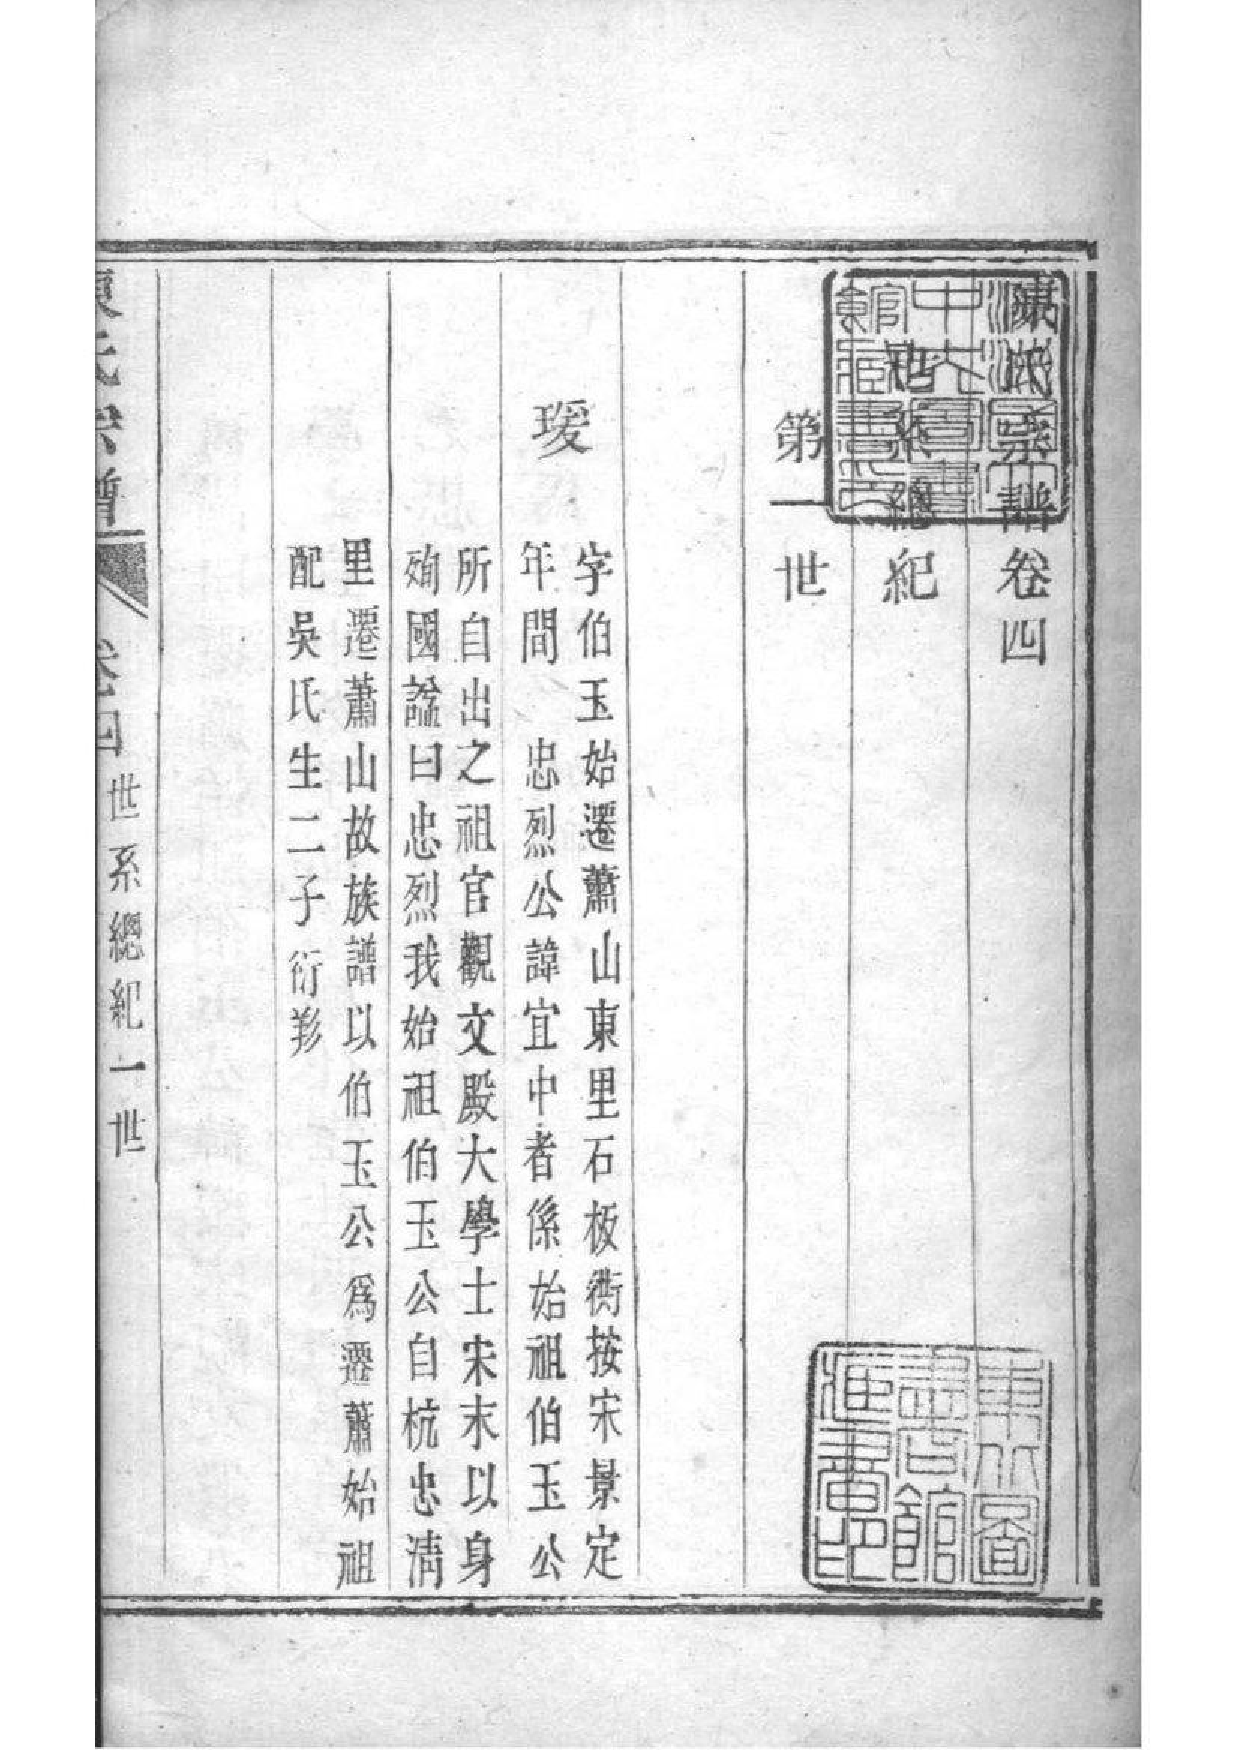 陳氏宗譜卷四
世系總紀
第一世
瑷
字伯玉始遷蕭山東里石板衖按宋景定
年間　忠烈公諱宜中者係始祖伯玉公
所自出之祖官觀文殿大學士宋末以身
殉國諡曰忠烈我始祖伯玉公自杭忠清
里遷蕭山故族譜以伯玉公為遷蕭始祖
配吳氏生二子衍羕
陳氏宗譜
卷四
世系總紀一世
東北圖書館藏書印